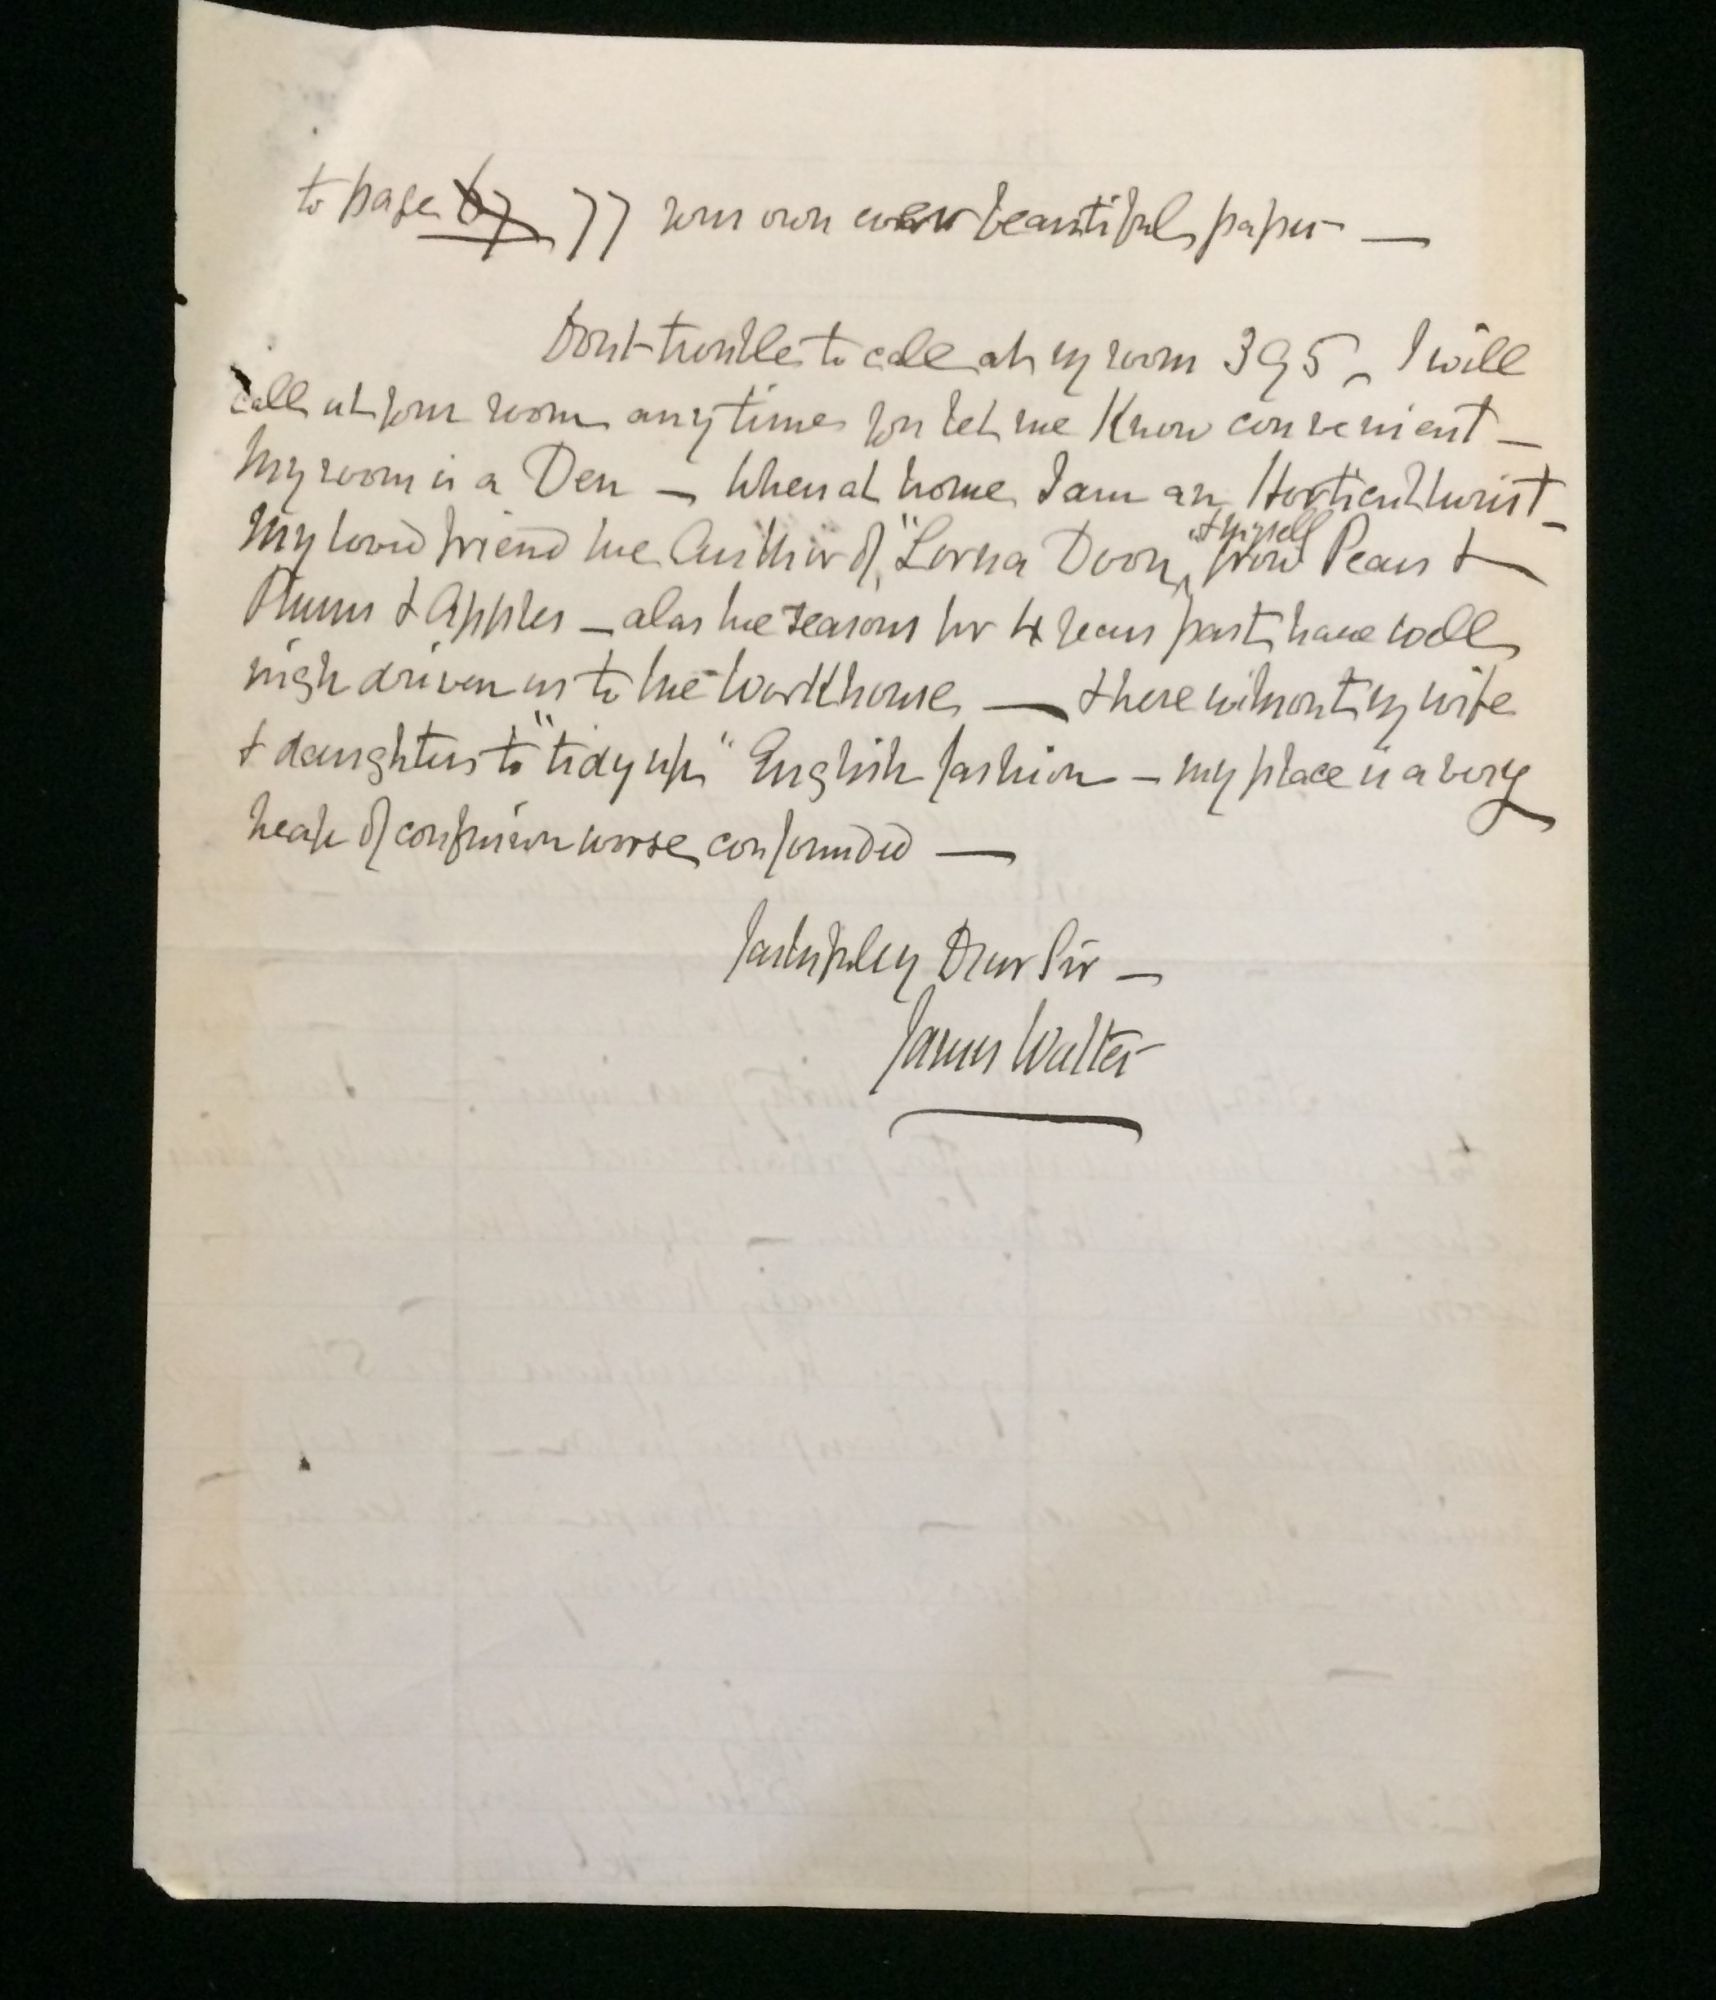 to page 67 77 your own ever beautiful paper —
Dont trouble to call at my room 395, I will
call at your room anytime you let me Know convenient —
My room is a Den — When at home I am an Horticulturist —
My loved friend the Author of "Lorna Doon" & myself grow Pears &
Plums & Apples — alas the seasons for 4 years past have well
nigh driven us to the Workhouse — & here without my wife
& daughters to "tidy up" English fashion — my place is a very
heap of confusion worse confounded —
Faithfully Dear Sir —
James Walter